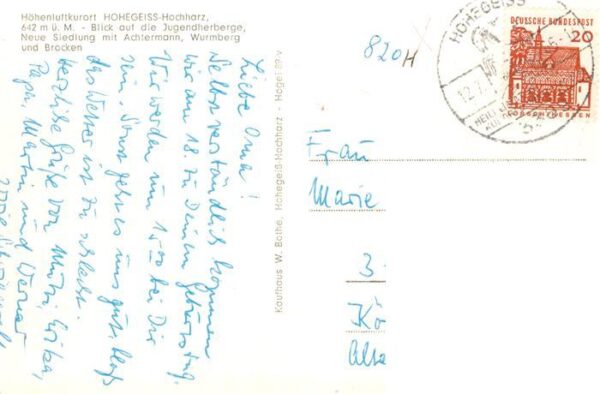 Höhenluftkurort HOHEGEISS-Hochharz,
642 m ü. M. - Blick auf die Jugendherberge,
Neue Siedlung mit Achtermann, Wurmberg
und Brocken
Liebe Oma!
Selbstverständlich kommen
wir am 18. zu Deinem Geburtstag.
Wir werden um 15 00 bei Dir
sein. Sonst geht es uns gut, bloß
das Wetter ist zu schlecht.
Herzliche Grüße von Mutti, Erika,
Papa, Martin und Werner
Kaufhaus W. Bothe, Hohegeiß-Hochharz - Hogei
820H
HOHEGEISS
12.7.
DEUTSCHE BUNDESPOST
20
LORSCH/HESSEN
Frau
Marie
3
Kö
Alte